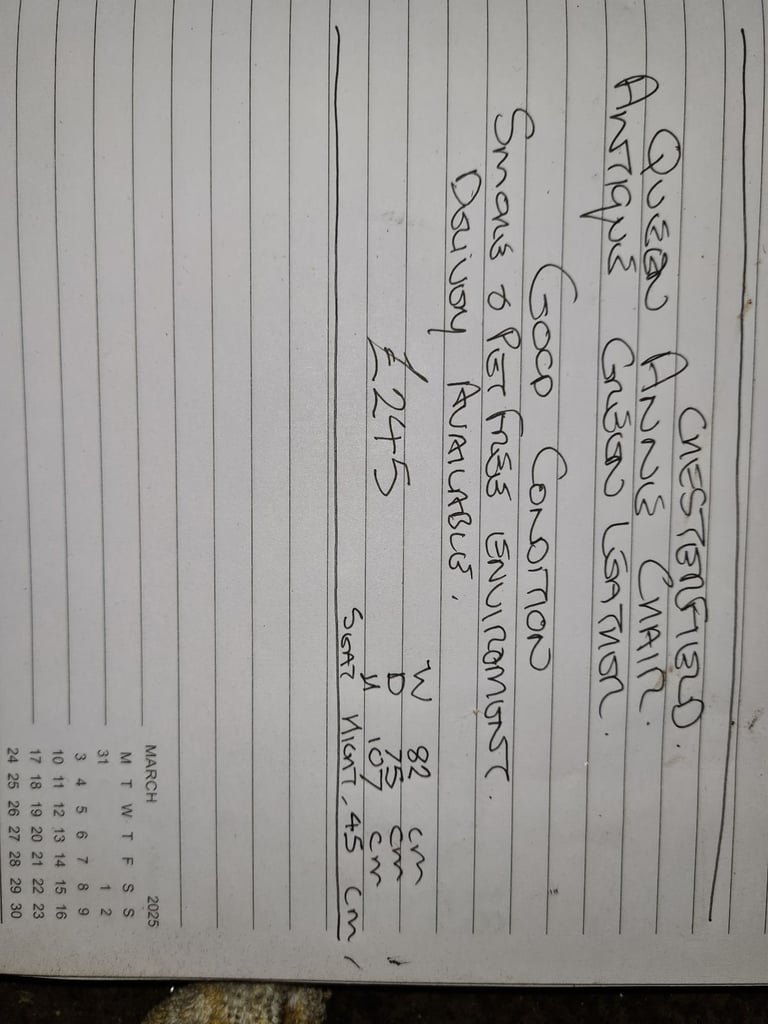 CHESTERFIELD.
QUEEN ANNE CHAIR.
ANTIQUE GREEN LEATHER.
GOOD CONDITION
SMOKE & PET FREE ENVIROMENT.
DELIVERY AVAILABLE.
£245
W 82 cm
D 75 cm
H 107 cm
SEAT HIGHT. 45 cm
MARCH 2025
M T W T F S S
31 1 2
3 4 5 6 7 8 9
10 11 12 13 14 15 16
17 18 19 20 21 22 23
24 25 26 27 28 29 30